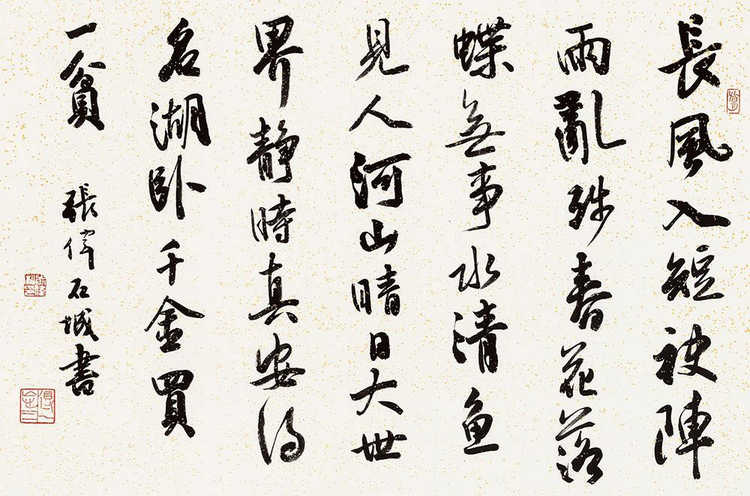 長風入短被陣
雨亂残春花落
蝶無事水清魚
見人河山晴日大世
界静時真安得
名湖卧千金買
一貧
張偉石城書